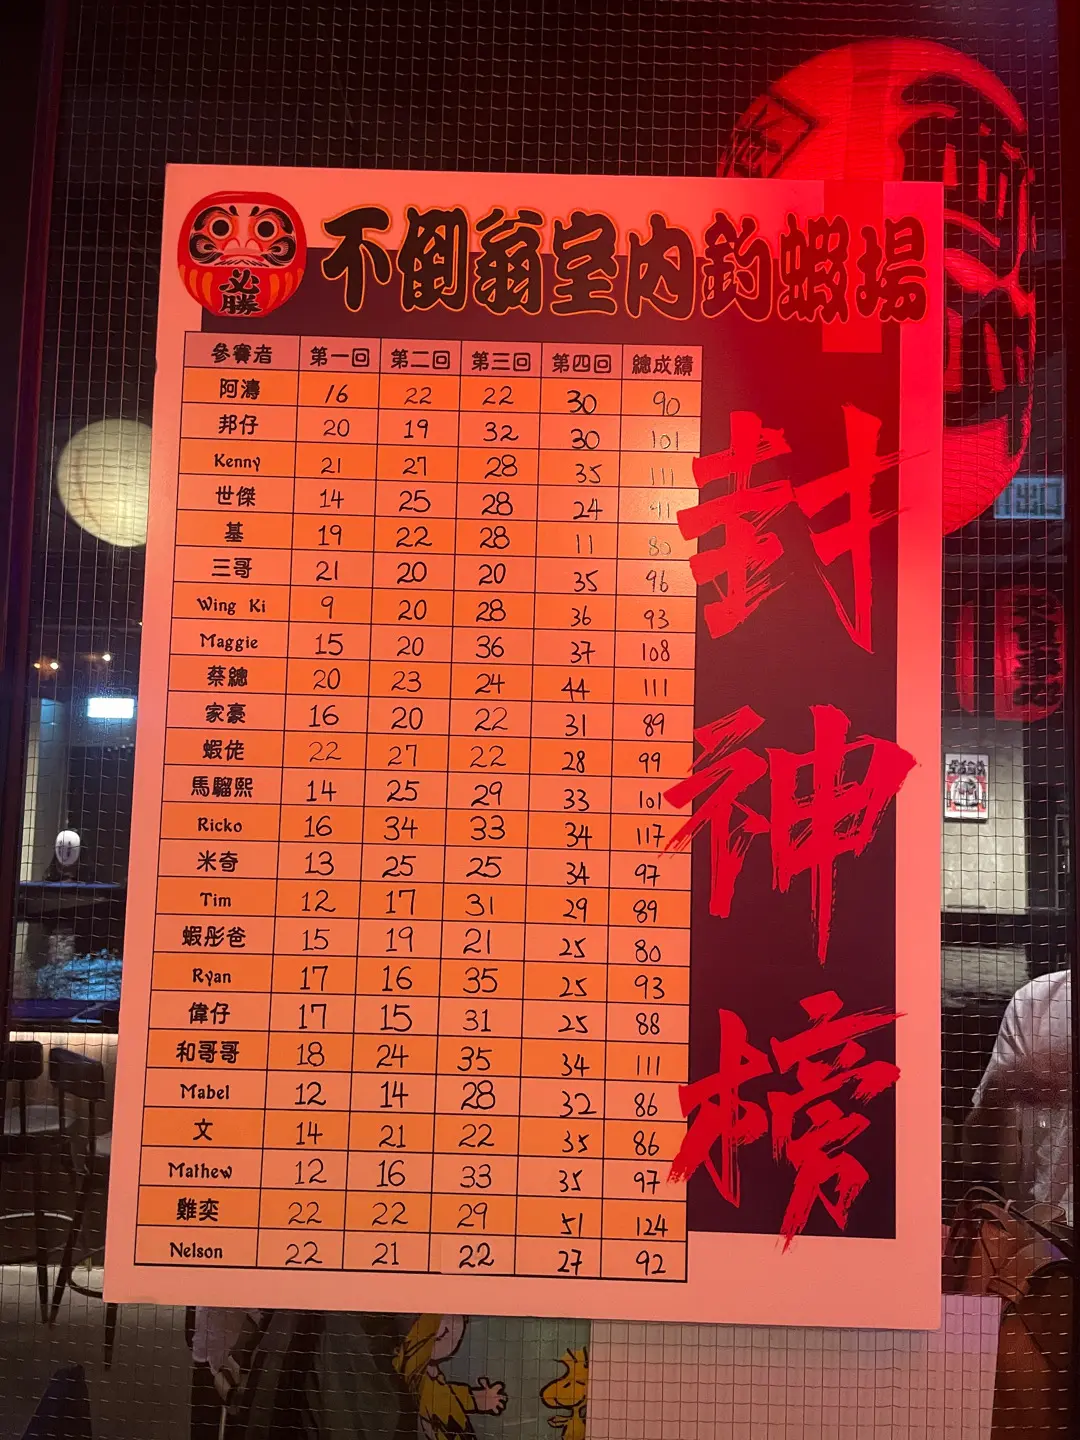 必
勝
不倒翁室內釣蝦場
參賽者 第一回 第二回 第三回 第四回 總成績
阿濤 16 22 22 30 90
邦仔 20 19 32 30 101
Kenny 21 27 28 35 111
世傑 14 25 28 24 91
基 19 22 28 11 80
三哥 21 20 20 35 96
Wing Ki 9 20 28 36 93
Maggie 15 20 36 37 108
蔡總 20 23 24 44 111
家豪 16 20 22 31 89
蝦佬 22 27 22 28 99
馬騮熙 14 25 29 33 101
Ricko 16 34 33 34 117
米奇 13 25 25 34 97
Tim 12 17 31 29 89
蝦彤爸 15 19 21 25 80
Ryan 17 16 35 25 93
偉仔 17 15 31 25 88
和哥哥 18 24 35 34 111
Mabel 12 14 28 32 86
文 14 21 22 35 86
Mathew 12 16 33 35 97
雞奕 22 22 29 51 124
Nelson 22 21 22 27 92
封神榜